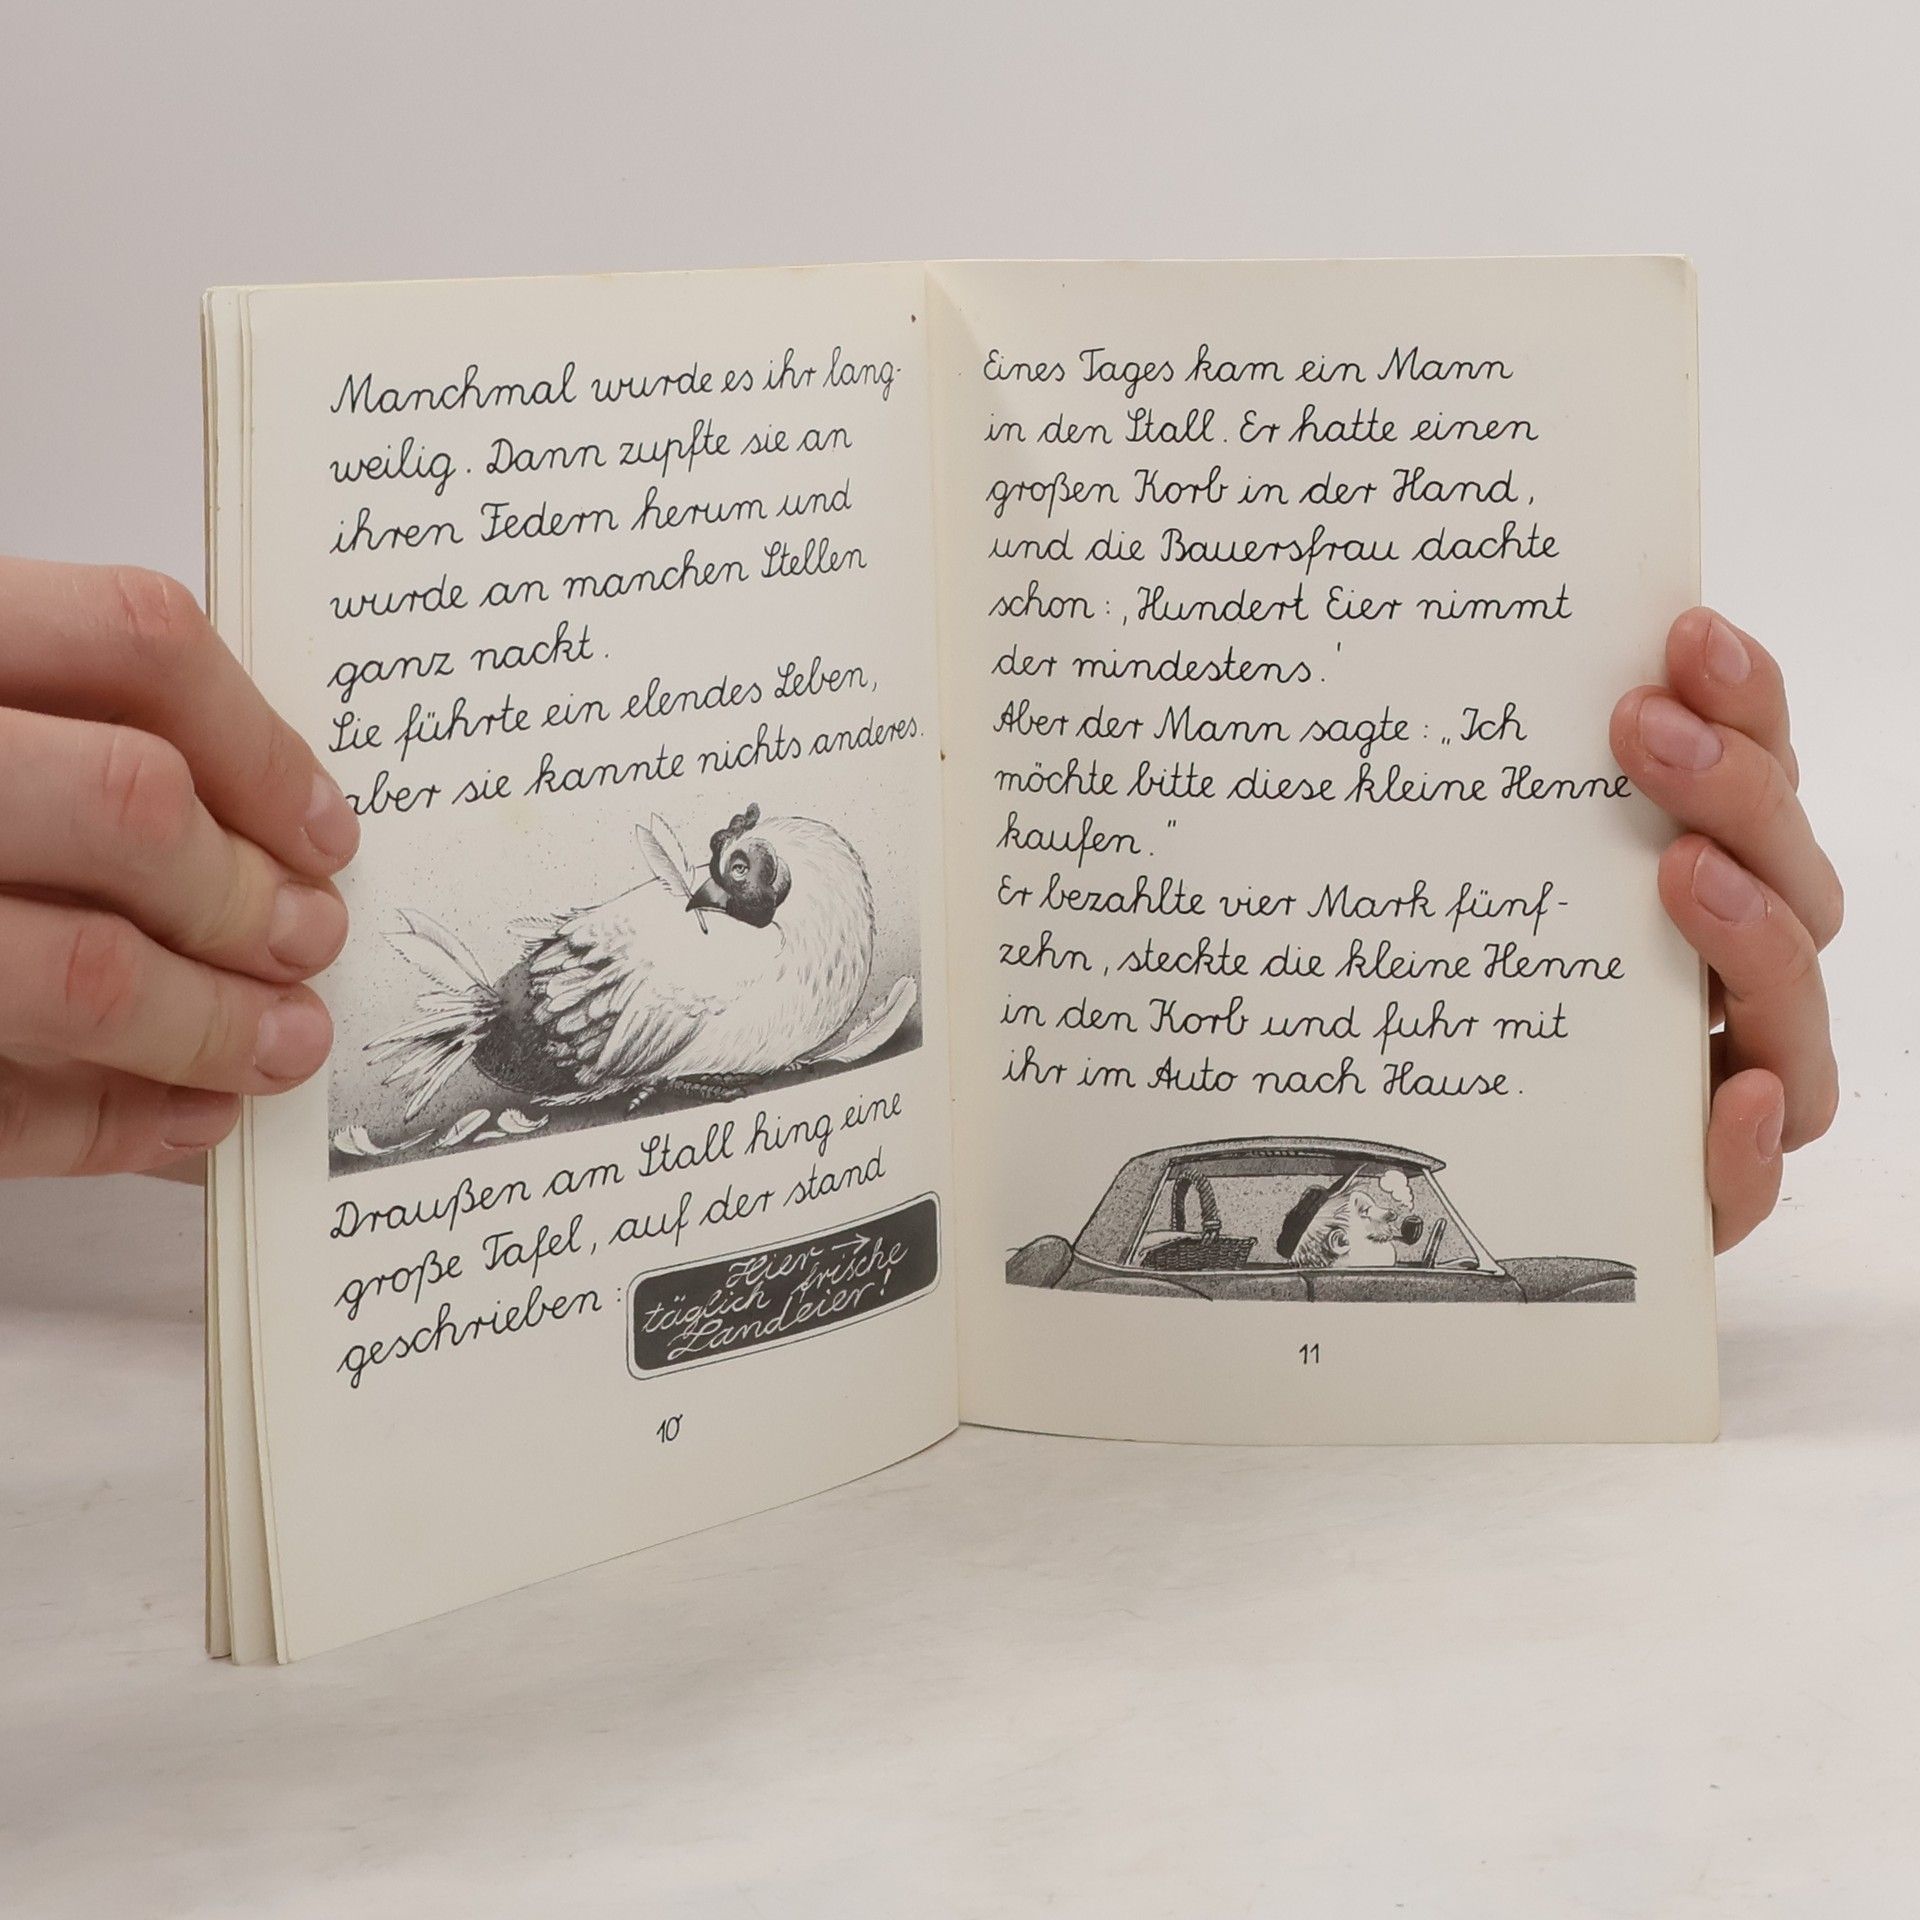 Manchmal wurde es ihr lang-
weilig. Dann zupfte sie an
ihren Federn herum und
wurde an manchen Stellen
ganz nackt.
Sie führte ein elendes Leben,
aber sie kannte nichts anderes.
Draußen am Stall hing eine
große Tafel, auf der stand
geschrieben:
Hier →
täglich frische
Landeier!
10
Eines Tages kam ein Mann
in den Stall. Er hatte einen
großen Korb in der Hand,
und die Bauersfrau dachte
schon: ‚Hundert Eier nimmt
der mindestens.'
Aber der Mann sagte: „Ich
möchte bitte diese kleine Henne
kaufen."
Er bezahlte vier Mark fünf-
zehn, steckte die kleine Henne
in den Korb und fuhr mit
ihr im Auto nach Hause.
11